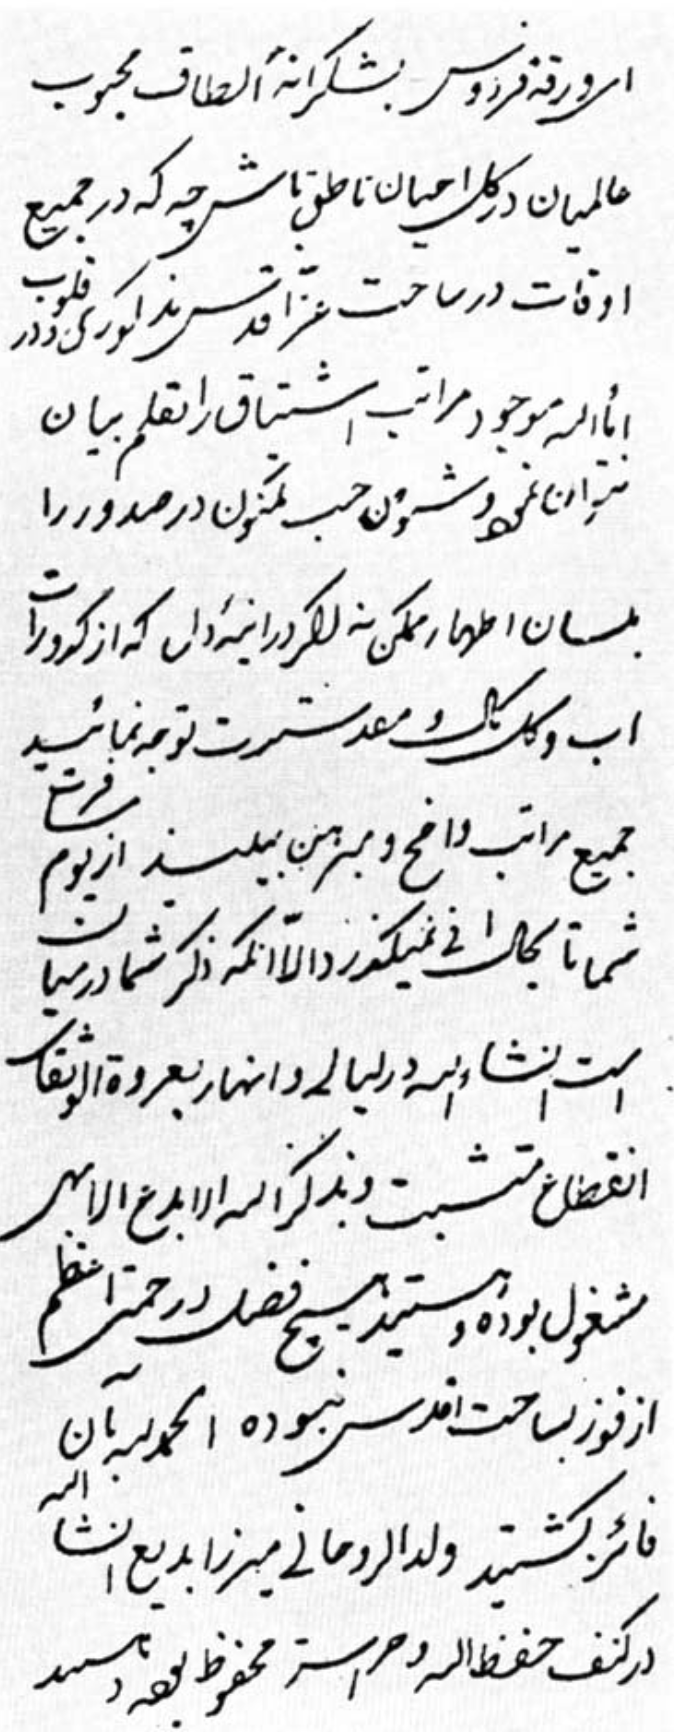 ای ورقة فردوس بشکرانهٔ الطاف محبوب
عالمیان در کل احیان ناطق باش چه که در جمیع
اوقات در ساحت عز اقدس مذکوری و در قلوب
اماء الله موجود مراتب اشتیاق را بقلم بیان
نتوان نمود و شئون حب مکنون در صدور را
بلسان اظهار ممکن نه که از کدورات
اب و کل توجه نمائید
جمیع مراتب واضح و مبرهن ببینید از یوم مسافرت
شما تا بحال آنی نمیگذرد الا آنکه ذکر شما در میان
است انشاء الله در لیالی و انهار بعروة الوثقای
انقطاع متشبث و بذکر الله الابدع الابهی
مشغول بوده و هستید هیچ فضل و رحمتی اعظم
از فوز بساحت اقدس نبوده الحمد لله بآن
فائز گشتید ولد الروحانی میرزا بدیع انشا الله
در کنف حفظ الله و حراسته محفوظ بوده و باشید